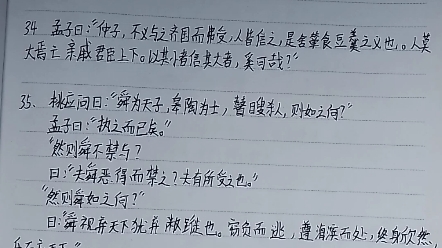 34 孟子曰:“仲子,不义与之齐国而弗受,人皆信之,是舍箪食豆羹之义也。人莫
大焉亡亲戚君臣上下。以其小者信其大者,奚可哉?”
35、桃应问曰:“舜为天子,皋陶为士,瞽瞍杀人,则如之何?”
孟子曰:“执之而已矣。”
“然则舜不禁与?
曰:“夫舜恶得而禁之?夫有所受之也。”
“然则舜如之何?”
曰:“舜视弃天下犹弃敝蹝也。窃负而逃,遵海滨而处,终身欣然